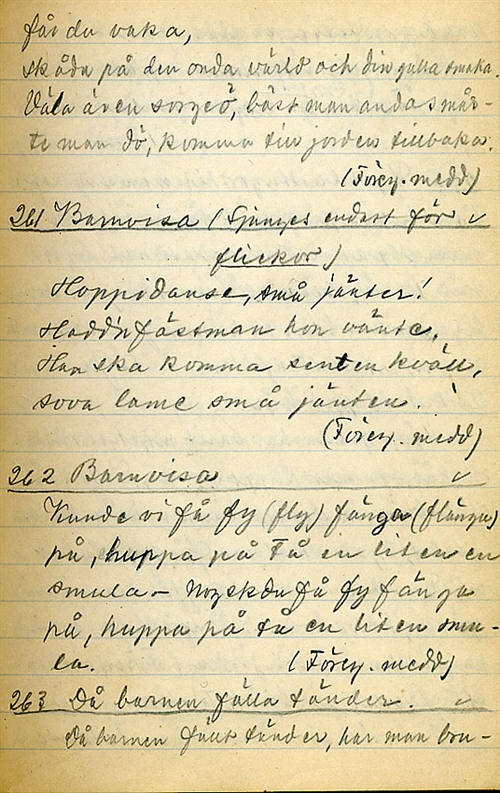 får du vaka,
skåda på den onda värld och din galla smaka.
Väla även sorgeö, bäst man andas mås-
te man dö, komma till jorden tillbaka.
(Föreg. medd)
261 Barnvisa (Sjunges endast för
flickor)
Hoppidanse, små jänter!
Hadd'n fästman hon vänte,
Han ska komma sent en kväll,
sova lame små jänten.
(Föreg. medd)
262 Barnvisa
Kunde vi få fy (fly) fänga (flänga)
på, huppa på tå en liten en
smula – Nog ska du få fy fänga
på, huppa på tå en liten smu-
la. (Föreg. medd)
263 Då barnen fälla tänder.
Då barnen fällt tänder, har man bru-